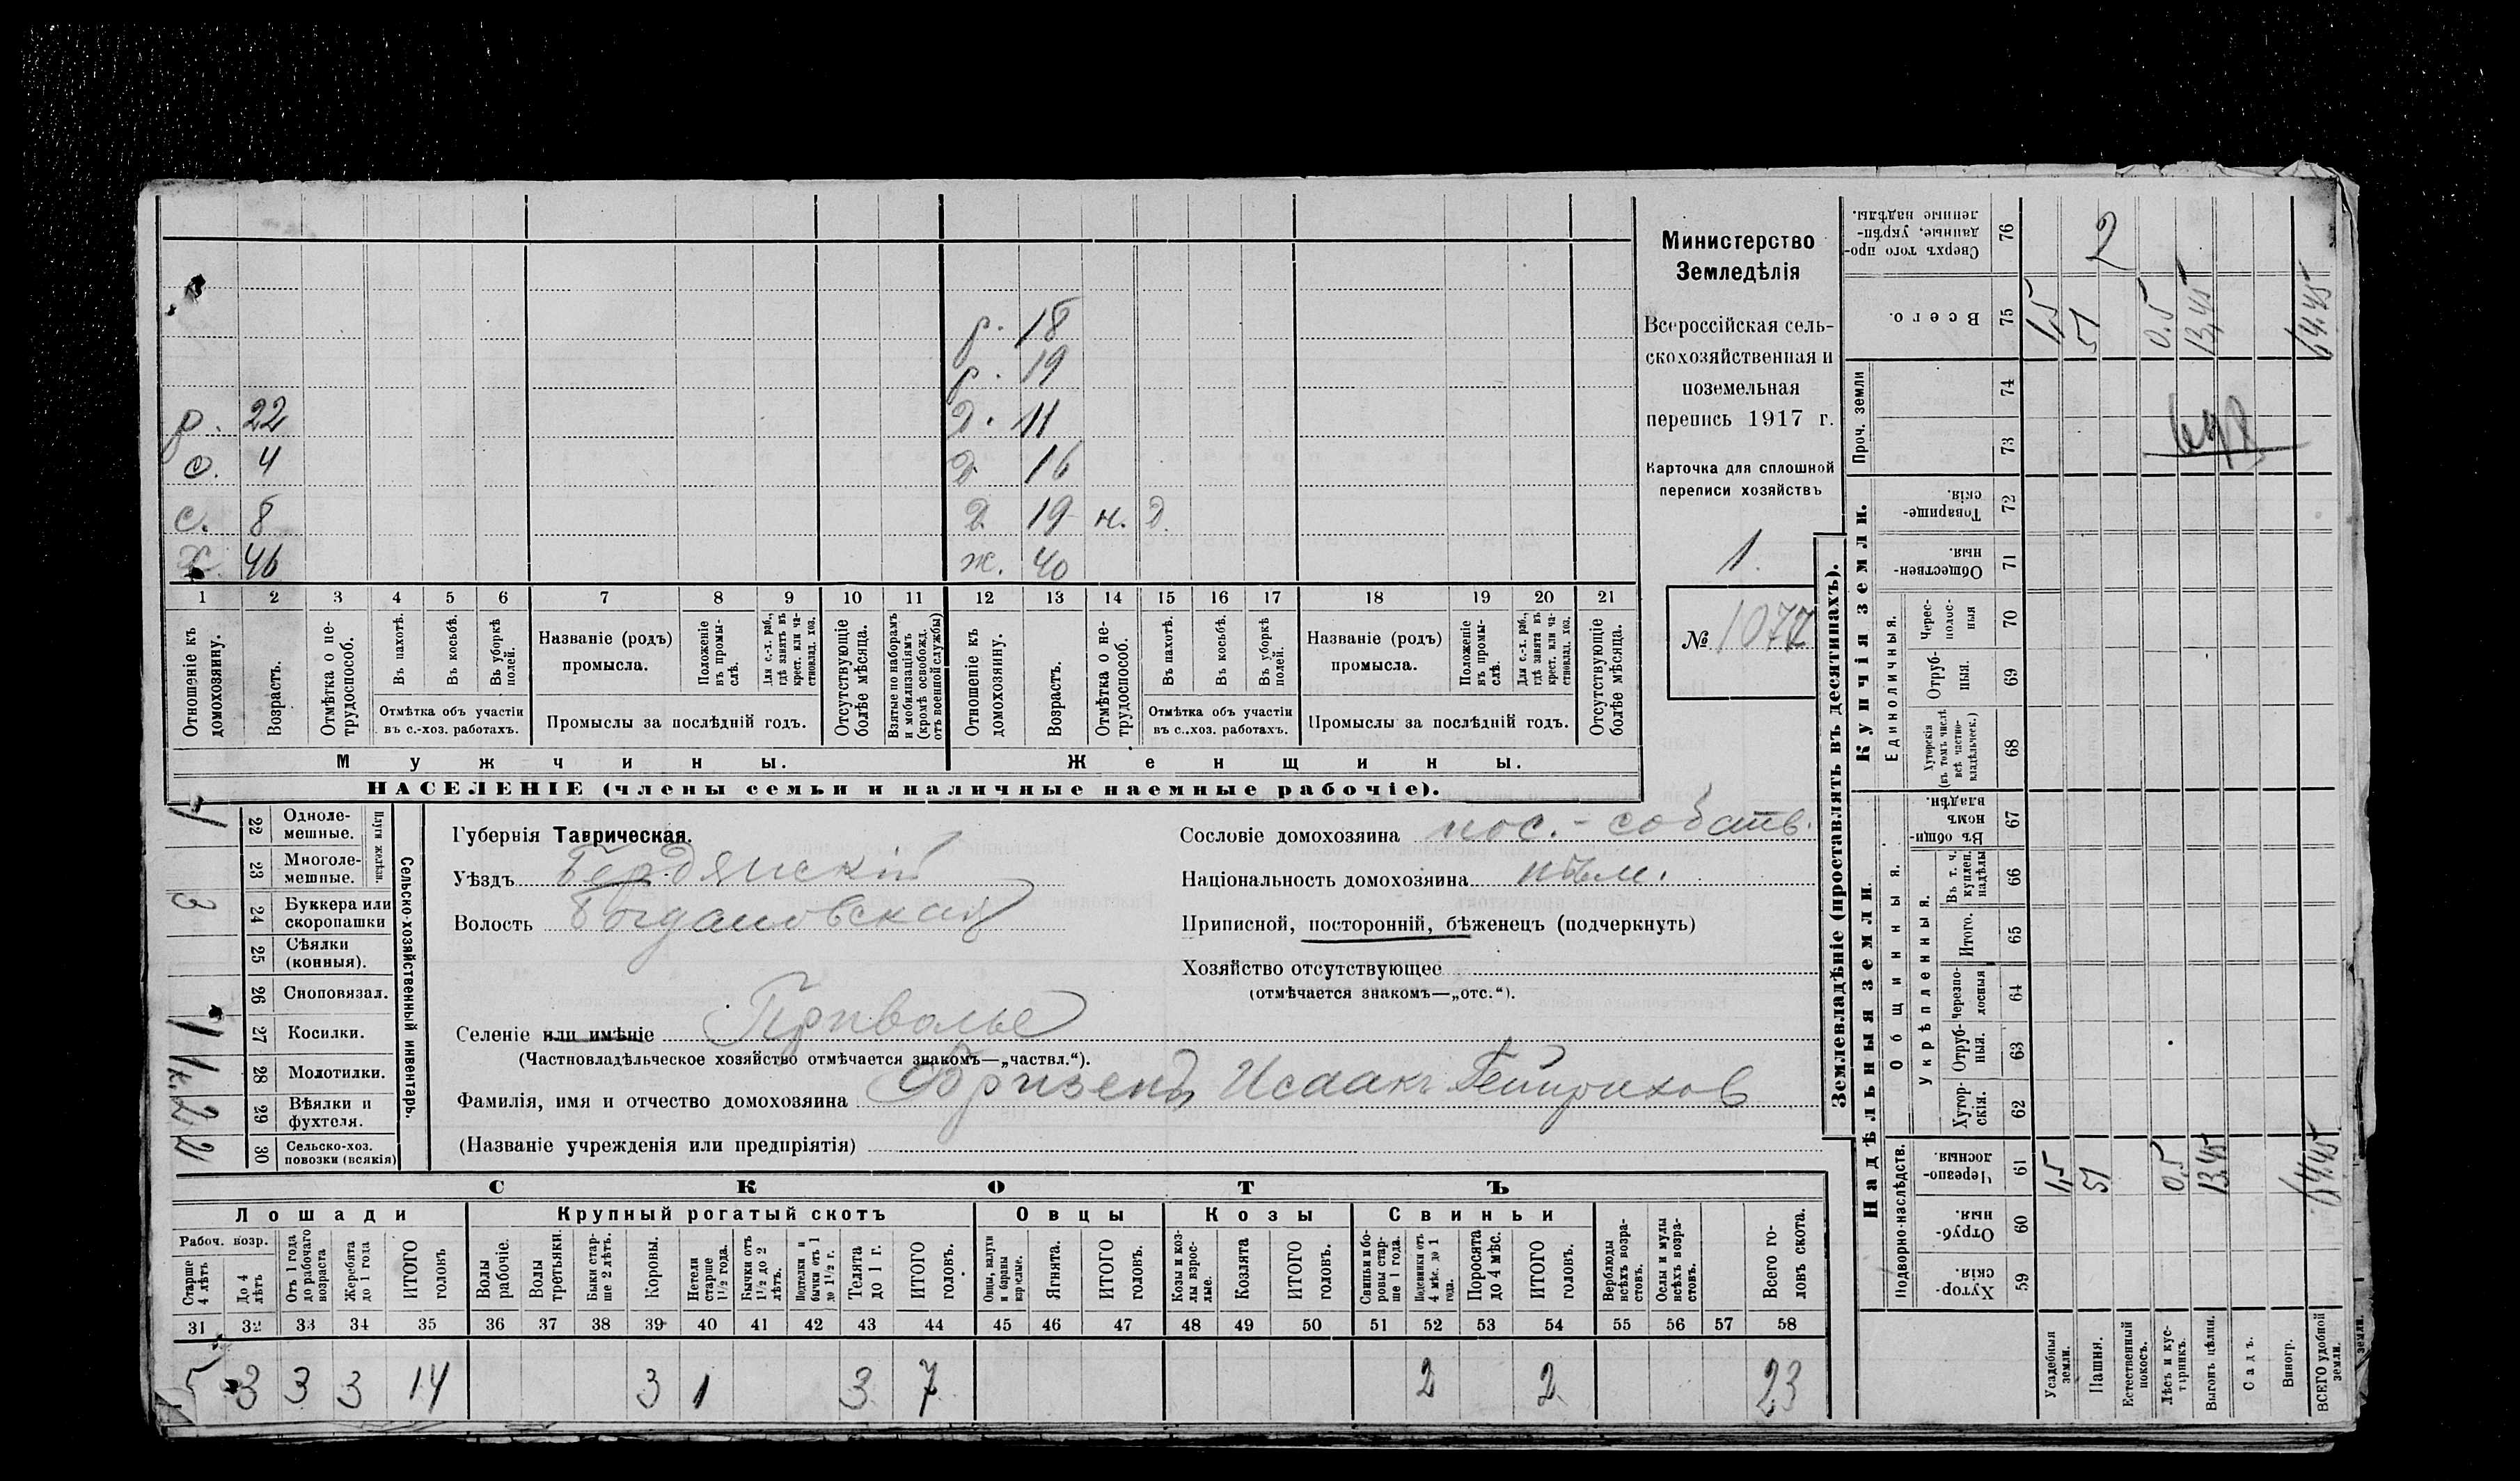 р. 18
р. 19
р. 22 д. 11
с. 4 д. 16
с. 8 д. 19 н. д.
х. 46 ж. 40
1 2 3 4 5 6 7 8 9 10 11 12 13 14 15 16 17 18 19 20 21
Отношеніе къ домохозяину.
Возрастъ.
Отмѣтка о нетрудоспособ.
Въ пахотѣ.
Въ косьбѣ.
Въ уборкѣ полей.
Отмѣтка объ участіи въ с.-хоз. работахъ.
Названіе (родъ) промысла.
Положеніе въ промыслѣ.
Для с.-х. раб., гдѣ занятъ въ крест. или частновлад. хоз.
Промыслы за послѣдній годъ.
Отсутствующіе болѣе мѣсяца.
Взятые по наборамъ и мобилизаціямъ (кромѣ освобожд. отъ военной службы)
Отношеніе къ домохозяину.
Возрастъ.
Отмѣтка о нетрудоспособ.
Въ пахотѣ.
Въ косьбѣ.
Въ уборкѣ полей.
Отмѣтка объ участіи въ с.-хоз. работахъ.
Названіе (родъ) промысла.
Положеніе въ промыслѣ.
Для с.-х. раб., гдѣ занята въ крест. или частновлад. хоз.
Промыслы за послѣдній годъ.
Отсутствующіе болѣе мѣсяца.
Мужчины. Женщины.
НАСЕЛЕНІЕ (члены семьи и наличные наемные рабочіе).
Министерство
Земледѣлія
Всероссійская сель-
скохозяйственная и
поземельная
перепись 1917 г.
Карточка для сплошной
переписи хозяйствъ
1.
№ 1077
Сельско-хозяйственный инвентарь.
Плуги желѣзн.
22 Одноле-мешные. 1
23 Многоле-мешные.
24 Буккера или скоропашки 3
25 Сѣялки (конныя).
26 Сноповязал.
27 Косилки. 1
28 Молотилки. 1 к.
29 Вѣялки и фухтеля. 2
30 Сельско-хоз. повозки (всякія) 2
Губернія Таврическая.
Уѣздъ Бердянскій
Волость Богдановская
Селеніе или имѣніе Приволье
(Частновладѣльческое хозяйство отмѣчается знакомъ—„частвл.“).
Фамилія, имя и отчество домохозяина Фризенъ Исаакъ Гейнрихов
(Названіе учрежденія или предпріятія)
Сословіе домохозяина пос.-собств.
Національность домохозяина нѣм.
Приписной, посторонній, бѣженецъ (подчеркнуть)
Хозяйство отсутствующее
(отмѣчается знакомъ—„отс.“).
СКОТЪ
Лошади Крупный рогатый скотъ Овцы Козы Свиньи
Рабоч. возр.
Старше 4 лѣтъ
До 4 лѣтъ
Отъ 1 года до рабочаго возраста
Жеребята до 1 года
ИТОГО головъ
Волы рабочіе.
Волы третьяки.
Быки старше 2 лѣтъ.
Коровы.
Нетели старше 1½ года.
Бычки отъ 1½ до 2 лѣтъ.
Нетелки и бычки отъ 1 до 1½ г.
Телята до 1 г.
ИТОГО головъ.
Овцы, валухи и бараны взрослые.
Ягнята.
ИТОГО головъ.
Козы и козлы взрослые.
Козлята
ИТОГО головъ.
Свиньи и боровы старше 1 года.
Подсвинки отъ 4 мѣс. до 1 года.
Поросята до 4 мѣс.
ИТОГО головъ.
Верблюды всѣхъ возрастовъ.
Ослы и мулы всѣхъ возрастовъ.
Всего головъ скота.
31 32 33 34 35 36 37 38 39 40 41 42 43 44 45 46 47 48 49 50 51 52 53 54 55 56 57 58
5 3 3 3 14 3 1 3 7 2 2 23
Землевладѣніе (проставлять въ десятинахъ).
Купчія земли.
Надѣльныя земли.
Сверхъ того проданные, укрѣпленные надѣлы. 76 2
Всего. 75 1,5 51 0.5 13,45 64.45
Проч. земли 74 73
Товарищескія. 72
Общественныя. 71
Единоличныя.
Чересполосныя 70
Отрубныя. 69
Хуторскія (въ томъ числѣ всѣ частновладѣльческ.) 68
Общинныя.
Въ общинномъ владѣн. 67
Укрѣпленныя.
Въ т. ч. куплен. надѣлы 66
Итого. 65
Черезполосныя 64
Отрубныя. 63
Хуторскія. 62
Подворно-наслѣдств.
Черезполосныя. 61 1,5 51 0,5 13,45 64.45
Отрубныя. 60
Хуторскія. 59
Усадебныя земли.
Пашня.
Естественный покосъ.
Лѣсъ и кустарникъ.
Выгонъ цѣлин.
Садъ.
Виногр.
ВСЕГО удобной земли.
земли.